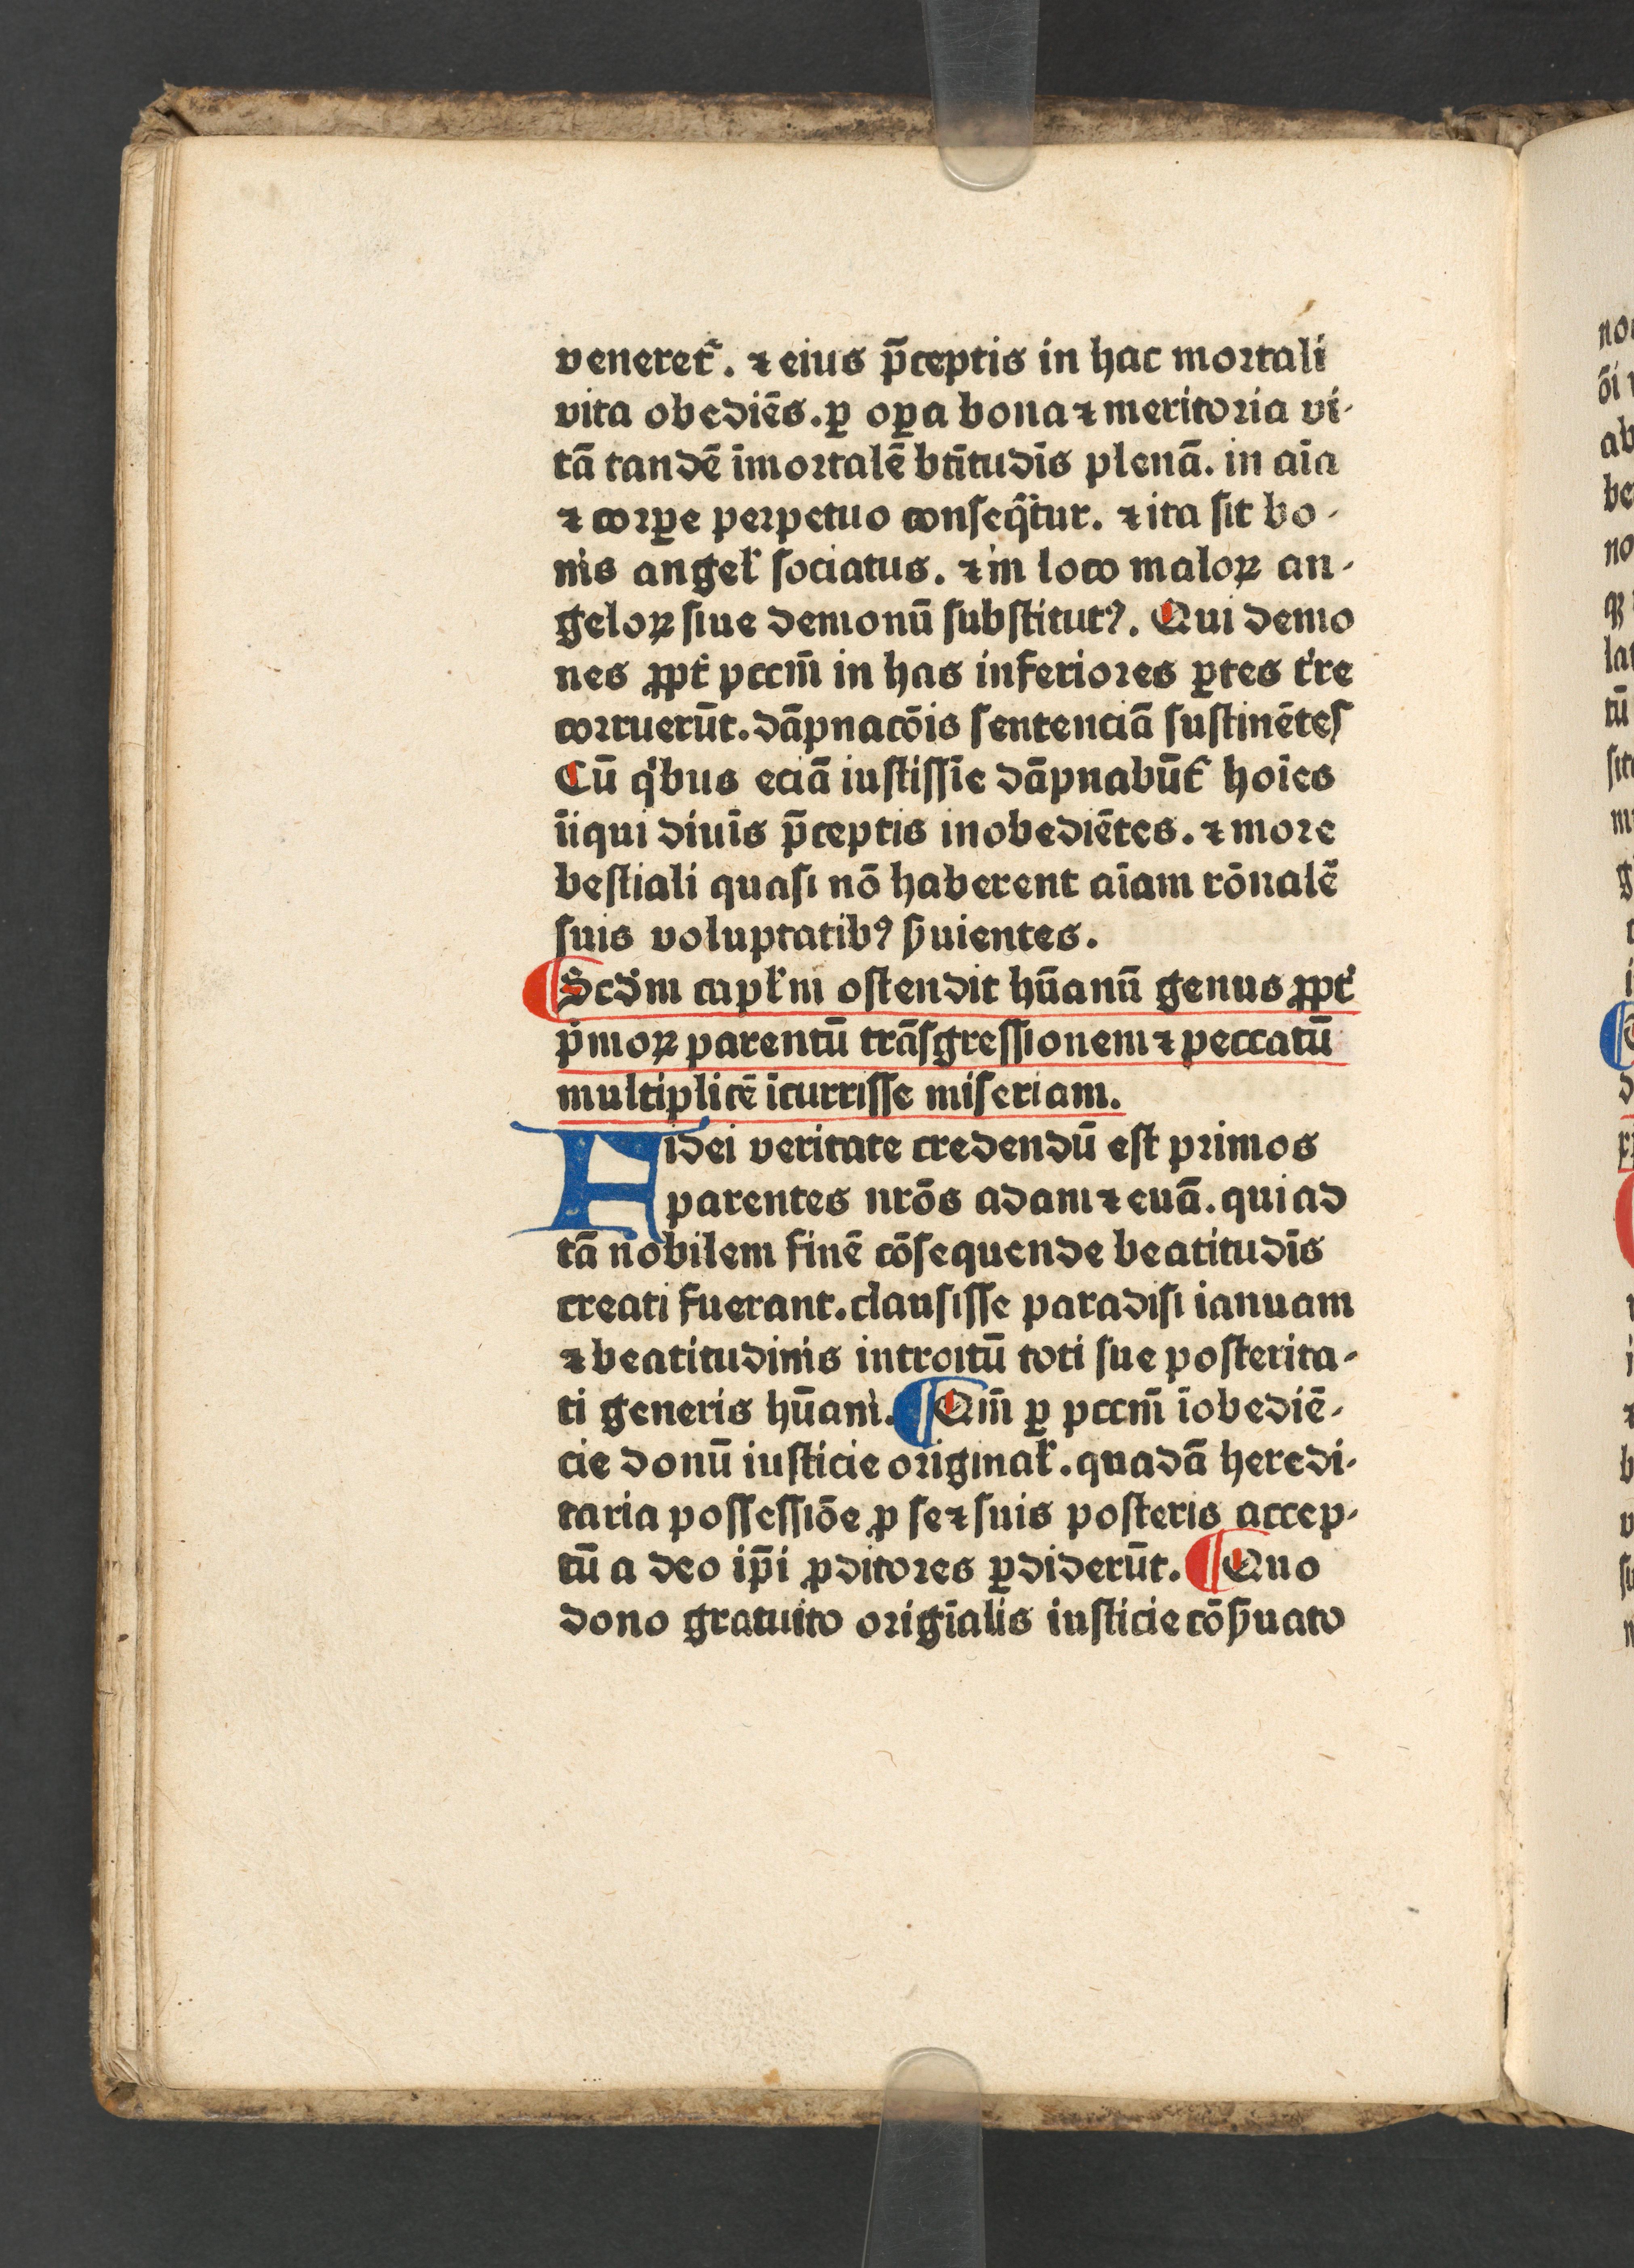 veneret᷑. ⁊ eius p̄ceptis in hac moꝛtali
vita obediēs. ꝑ oꝑa bona ⁊ meritoꝛia vi-
tā tandē īmoꝛtalē bt̄itudīs plenā. in aīa
⁊ coꝛꝑe perpetuo conseq̄tur. ⁊ ita ſit bo-
nis angel̉ ſociatus. ⁊ in loco maloꝝ an-
geloꝝ ſiue demonū ſubſtitutꝰ. Qui demo
nes ꝓpt̉ pccm̄ in has inferioꝛes ꝑtes t̉re
coꝛruerūt. dāpnacōis ſentenciā ſuſtinētes
Cū qͥbus eciā iuſtiſſīe dāpnabūt᷑ hoīes
īiqui diuīs p̄ceptis inobediētes. ⁊ moꝛe
beſtiali quaſi nō haberent aīam rōnalē
ſuis voluptatibꝰ ẜuientes.
¶ Scd̉m capl̉m oſtendit hūanū genus ꝓpt̉
pͥmoꝝ parentū trāſgreſſionem ⁊ peccatū
multiplicē īcurriſſe miſeriam.
Fidei veritate credendū eſt pꝛimos
parentes nrōs adam ⁊ euā. qui ad
tā nobilem finē cōſequende beatitudīs
creati fuerant. clauſiſſe paradiſi ianuam
⁊ beatitudinis introitū toti ſue poſterita-
ti generis hūani. ¶ Qm̄ ꝑ pccm̄ īobediē-
cie donū iuſticie oꝛiginal̉. quadā heredi-
taria poſſeſſiōe ꝓ ſe ⁊ ſuis poſteris accep-
tū a deo ip̄i ꝓditoꝛes ꝑdiderūt. ¶ Quo
dono gratuito oꝛigīalis iuſticie cōẜuato